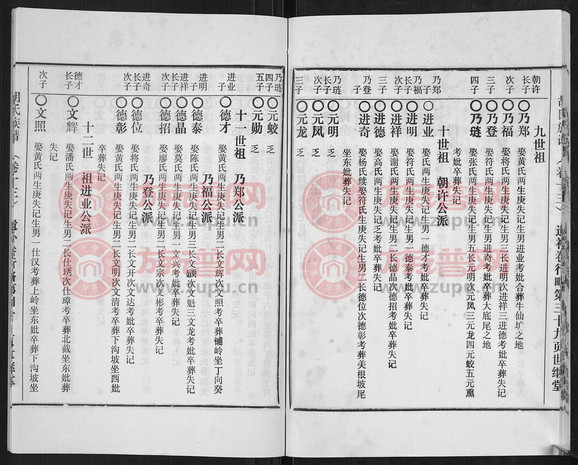 九世祖
朝许
长子
○乃郑 娶黄氏两生庚失记生男进业考妣合葬生仙圹之地
次子
○乃福 娶蒋氏两生庚失记生男三长进明次进祥三进德考妣卒葬失记
三子
○乃登 娶符氏两生庚失记生男一进奇考妣卒葬大底尾之地
四子
○乃琏 娶张氏两生庚失记生男五长元明二元凤三元龙四元蛟五元熏
考妣卒葬失记
十世祖 朝许公派
乃郑
子
○进业 娶冯氏两生庚失记生男一德才考妣卒葬失记
乃福
长子
○进明 娶符氏两生庚失记生男一德泰考妣卒葬失记
次子
○进祥 娶谢氏两生庚失记生男二长德晶德招考妣卒葬失记
三子
○进德
乃登
子
○进奇 娶杨氏续娶符氏生庚失记生男二长德位次德彰考葬美根坡尾
坐东妣葬失记
乃琏
长子
○元明 乏
次子
○元凤 乏
三子
○元龙 乏
乃琏
四子
○元蛟 乏
五子
○元勋 乏
十一世祖 乃郑公派
进业
子
○德才 娶黄氏两生庚失记生男二长文辉次文照考卒葬铺岭坐丁向癸
妣卒葬失记
乃福公派
进明
子
○德泰 娶陈氏两生庚失记生男三长文颢次文魁三文龙考妣卒葬失记
进祥
长子
○德晶 娶吴氏两生庚失记生男一文弼考妣卒葬失记
次子
○德招 娶廖氏两生庚失记生男二长文宗次文彬考卒葬失记
乃登公派
进奇
长子
○德位 娶蒋氏两生庚失记生男二长文开次文达考妣卒葬失记
次子
○德彰 娶黄氏两生庚失记生男二长文明次文清考卒葬下沟坡坐西妣
卒葬失记
十二世 祖进业公派
德才
长子
○文辉 娶潘氏两生庚失记生男二长仕琇次仕璋考卒葬北截坐东妣葬
失记
次子
○文照 娶黄氏两生庚失记生男一仕汉考葬上岭坐东妣卒葬下沟坡坐
胡氏族谱
族谱网
zupu.cn